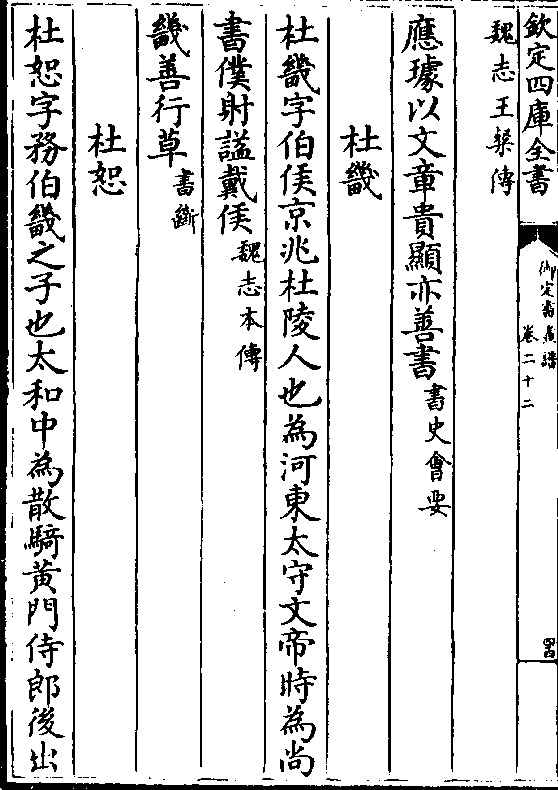 欽定四庫全書
御定書畫譜
卷二十二
魏志王粲傳
應璩以文章貴顯亦善書書史會要
杜畿
杜畿字伯侯京兆杜陵人也為河東太守文帝時為尚
書僕射諡戴侯魏志本傳
畿善行草書斷
杜恕
杜恕字務伯畿之子也太和中為散騎黃門侍郎後出